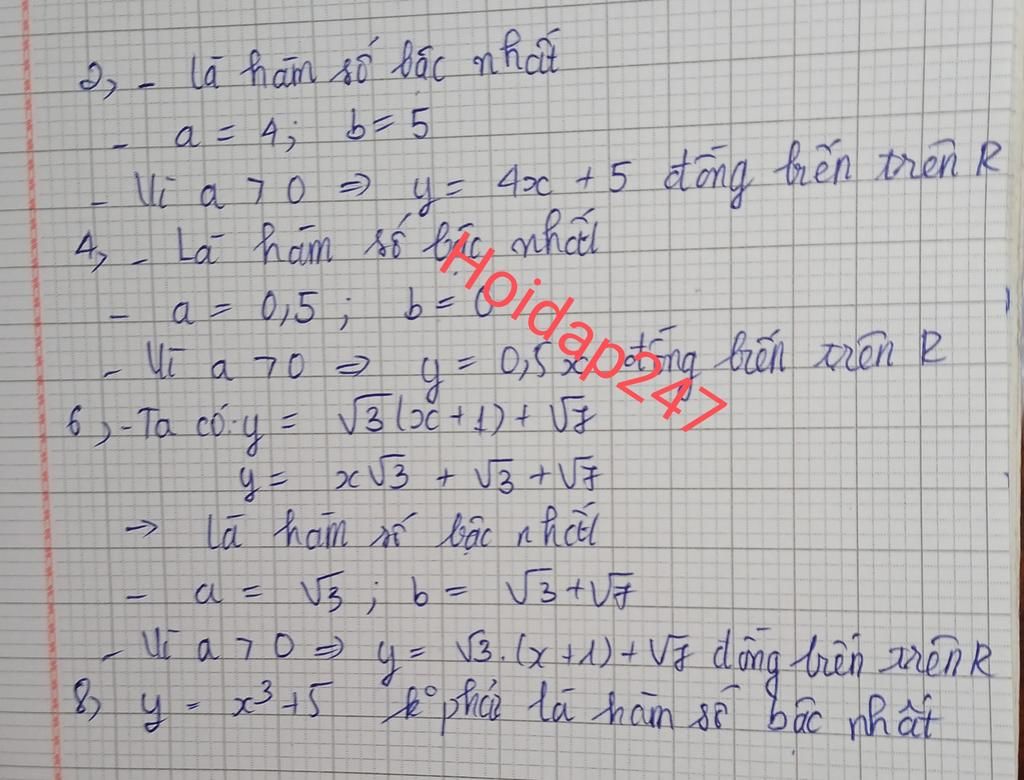 2, - Là hàm số bậc nhất
- a = 4; b = 5
- Vì a > 0 => y = 4x + 5 đồng biến trên R
4, - Là hàm số bậc nhất
- a = 0,5 ; b = 0
- Vì a > 0 => y = 0,5x đồng biến trên R
6, - Ta có: y = √3(x + 1) + √7
y = x√3 + √3 + √7
→ là hàm số bậc nhất
- a = √3 ; b = √3 + √7
- Vì a > 0 => y = √3.(x + 1) + √7 đồng biến trên R
8, y = x³ + 5 k° phải là hàm số bậc nhất
Hoidap247